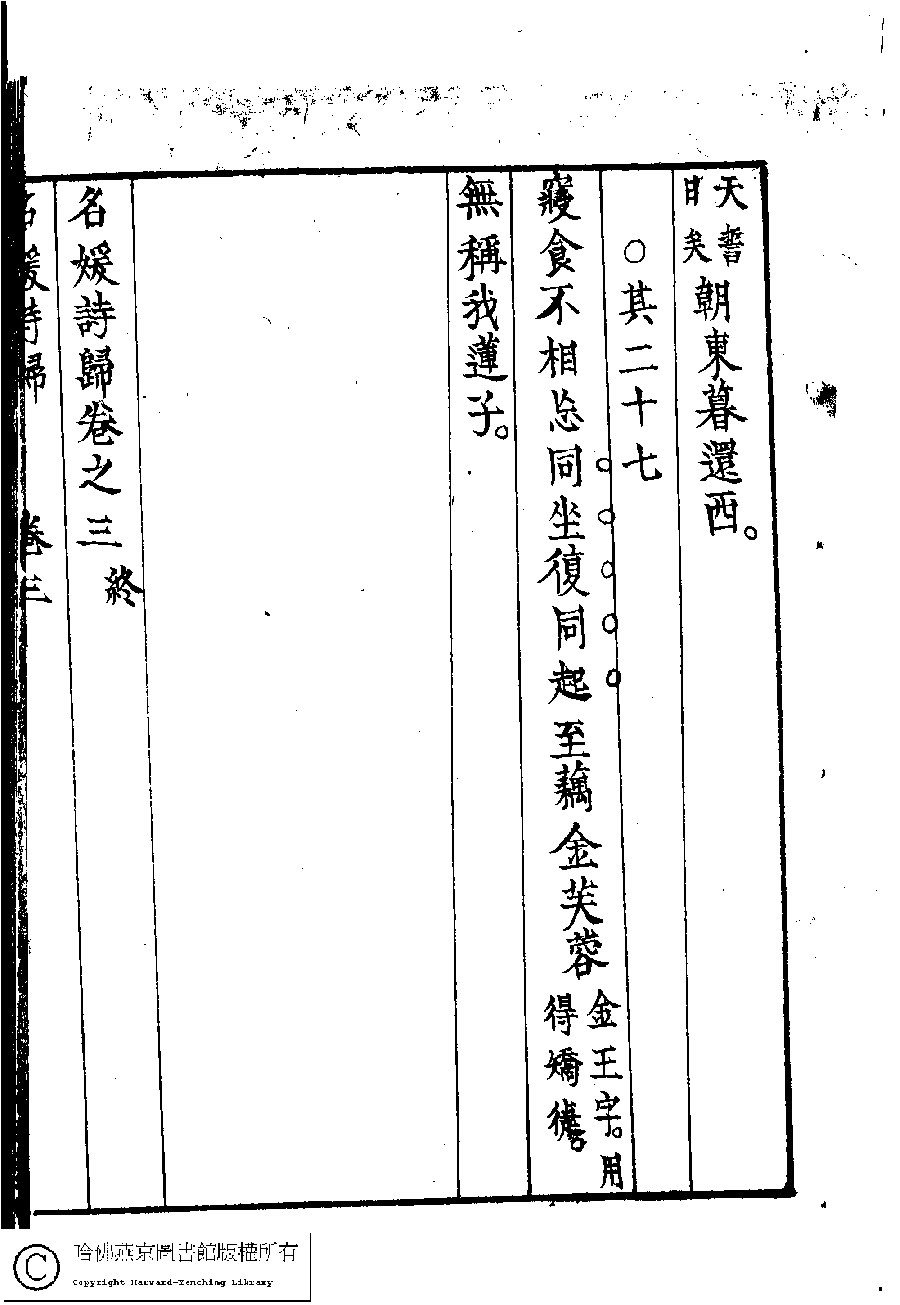 天誓
日矣
朝東暮還西。
○其二十七
寢食不相忘同坐復同起至藕金芙蓉
金王字。用
得矯徤
無稱我蓮子。
名媛詩歸卷之三 終
名媛詩歸 卷三
哈佛燕京圖書館版權所有
Copyright Harvard-Yenching Library